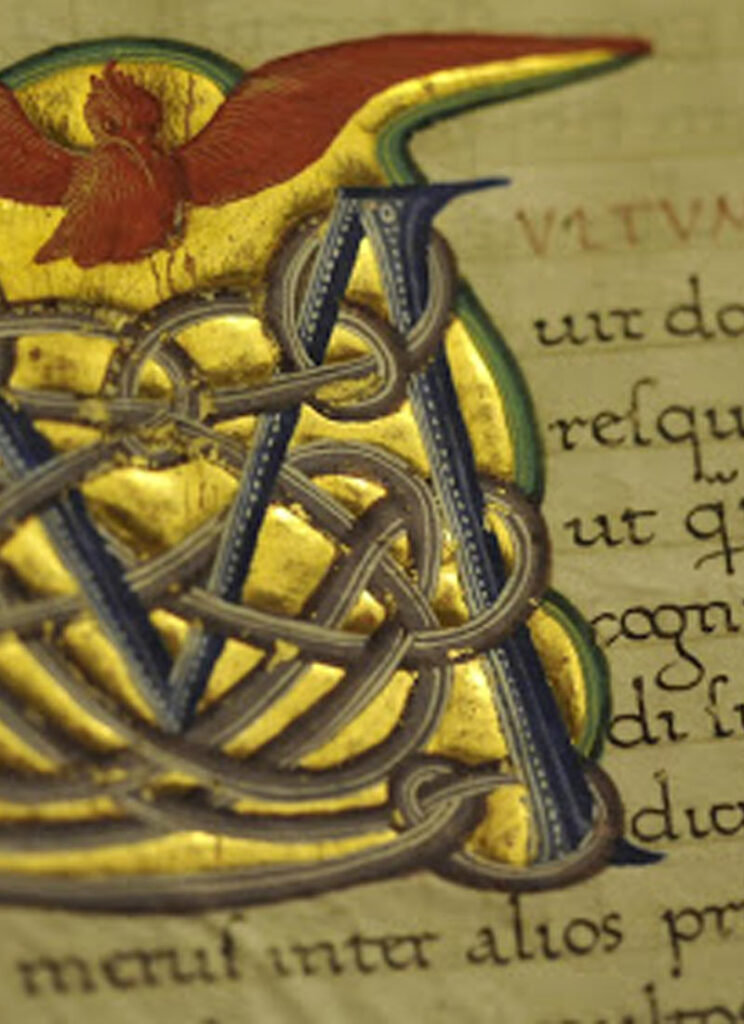 M
VLTVM
uir do
reſqu
ut q
cogni
di ſu
dia
meruſ inter alios pr